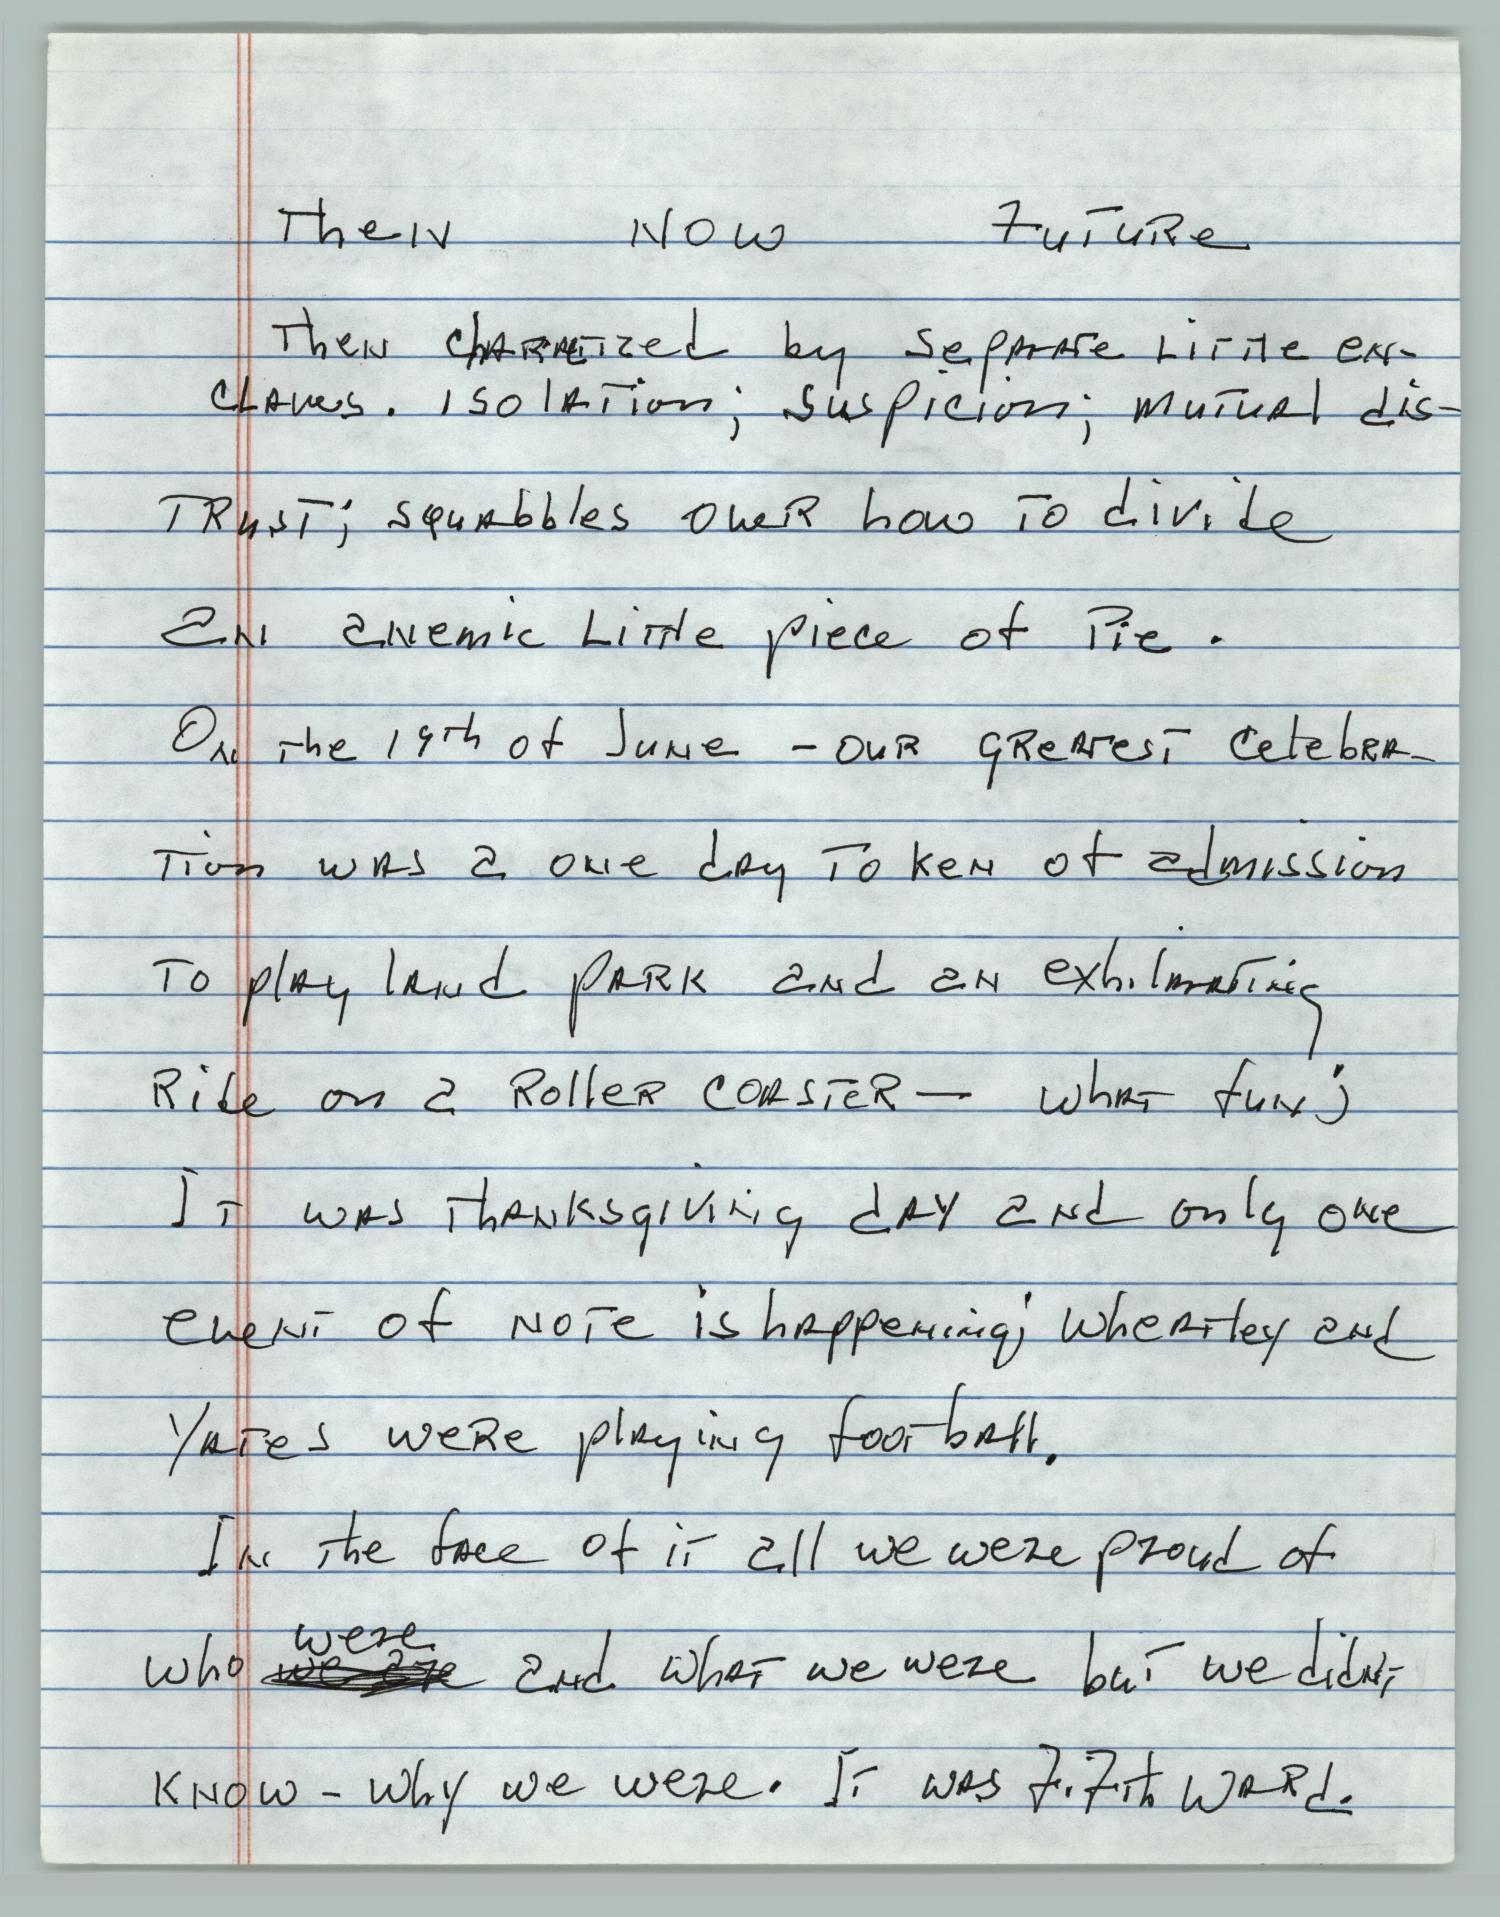 Then Now Future
Then charatized by separate little en-
claves. Isolation; suspicion; mutual dis-
trust; squabbles over how to divide
an anemic little piece of pie.
On the 19th of June - our greatest celebra-
tion was a one day token of admission
to play land park and an exhilarating
ride on a roller coaster — what fun;
It was thanksgiving day and only one
event of note is happening; Wheatley and
Yates were playing football.
In the face of it all we were proud of
were
who we are and what we were but we didn't
know - why we were. It was Fifth Ward.